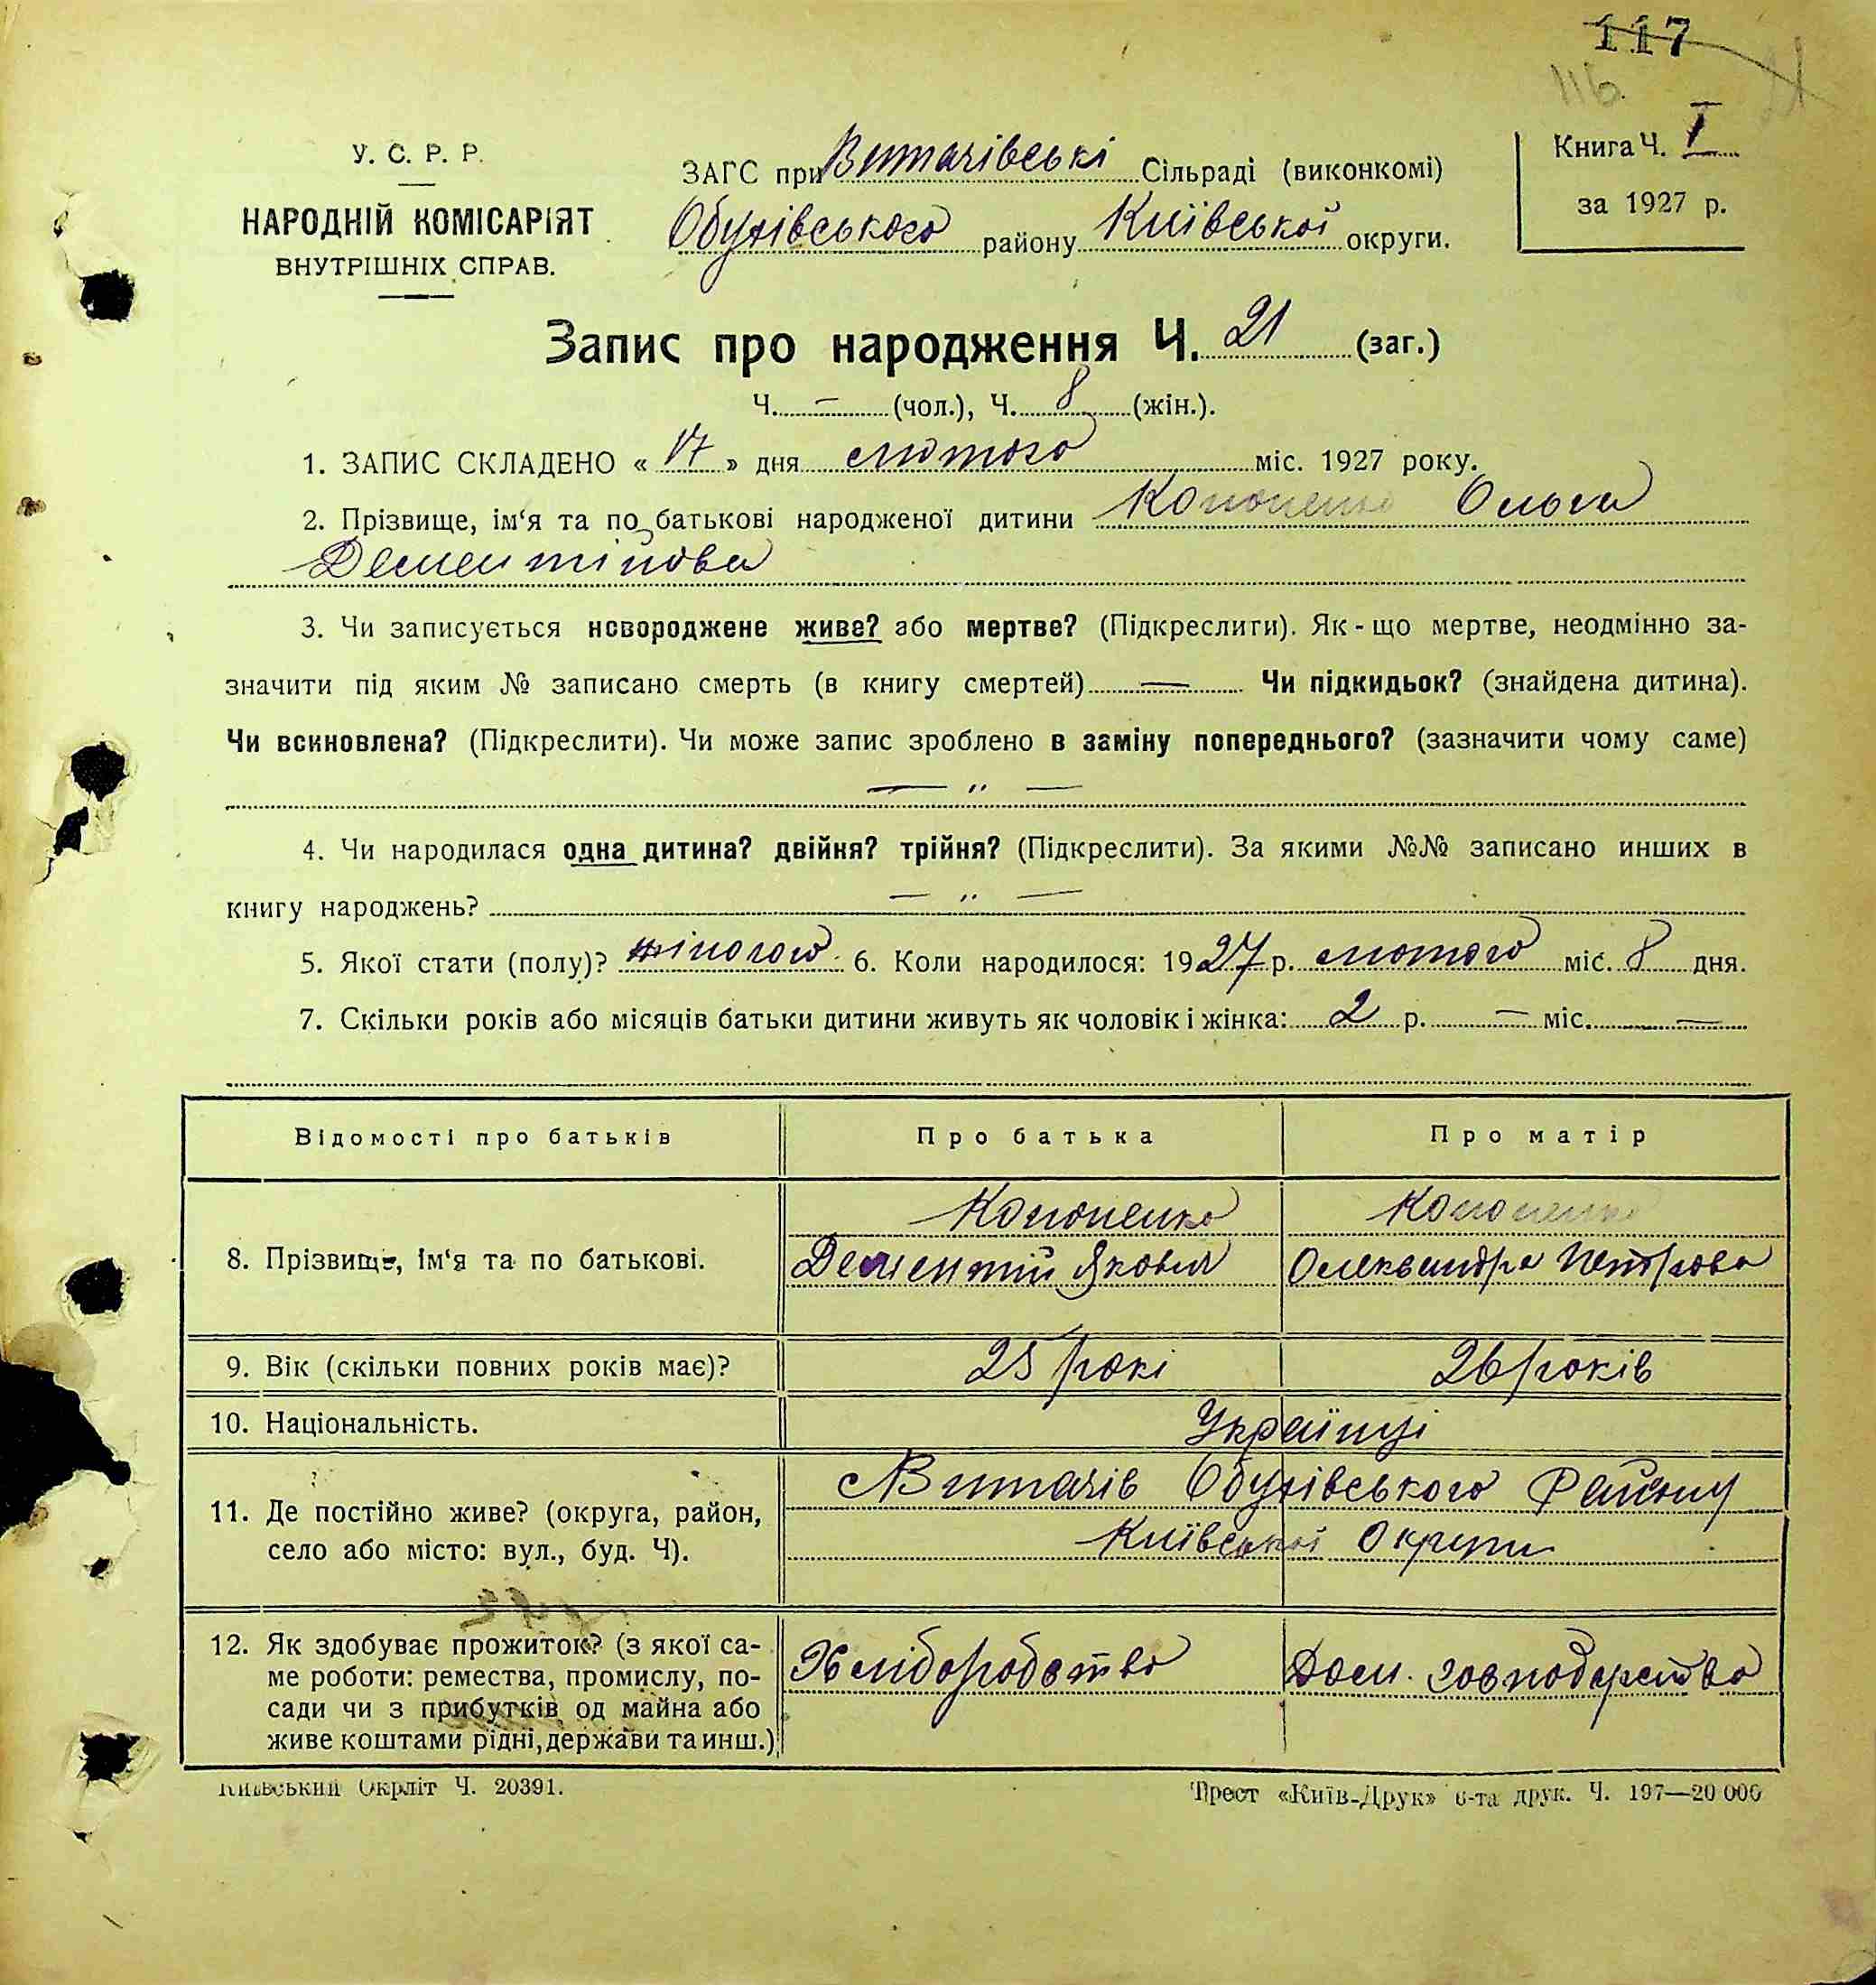 117
116
У. С. Р. Р.
НАРОДНІЙ КОМІСАРІЯТ
ВНУТРІШНІХ СПРАВ.
ЗАГС при Витачівські Сільраді (виконкомі)
Обухівського району Київської округи.
Книга Ч. I
за 1927 р.
Запис про народження Ч. 21 (заг.)
Ч. — (чол.), Ч. 8 (жін.).
1. ЗАПИС СКЛАДЕНО « 17 » дня лютого міс. 1927 року.
2. Прізвище, ім‘я та по батькові народженої дитини Кононенко Ольга
Дементійова
3. Чи записується новороджене живе? або мертве? (Підкреслити). Як-що мертве, неодмінно за-
значити під яким № записано смерть (в книгу смертей) — Чи підкидьок? (знайдена дитина).
Чи всиновлена? (Підкреслити). Чи може запис зроблено в заміну попереднього? (зазначити чому саме)
— „ —
4. Чи народилася одна дитина? двійня? трійня? (Підкреслити). За якими №№ записано инших в
книгу народжень? — „ —
5. Якої стати (полу)? жіногою. 6. Коли народилося: 1927 р. лютого міс. 8 дня.
7. Скільки років або місяців батьки дитини живуть як чоловік і жінка: 2 р. — міс. —
Відомості про батьків Про батька Про матір
8. Прізвище, ім‘я та по батькові. Кононенко Кононенко
Дементій Яковл Олександра Петрова
9. Вік (скільки повних років має)? 25 рокі 26 років
10. Національність. Українці
11. Де постійно живе? (округа, район, село або місто: вул., буд. Ч). с Витачів Обухівського Району
Київської Округи
12. Як здобуває прожиток? (з якої са-
ме роботи: ремества, промислу, по-
сади чи з прибутків од майна або
живе коштами рідні, держави та инш.)
Хліборобство Дом. господарство
Київський Окрліт Ч. 20391.
Трест «Київ-Друк» 6-та друк. Ч. 197—20 000